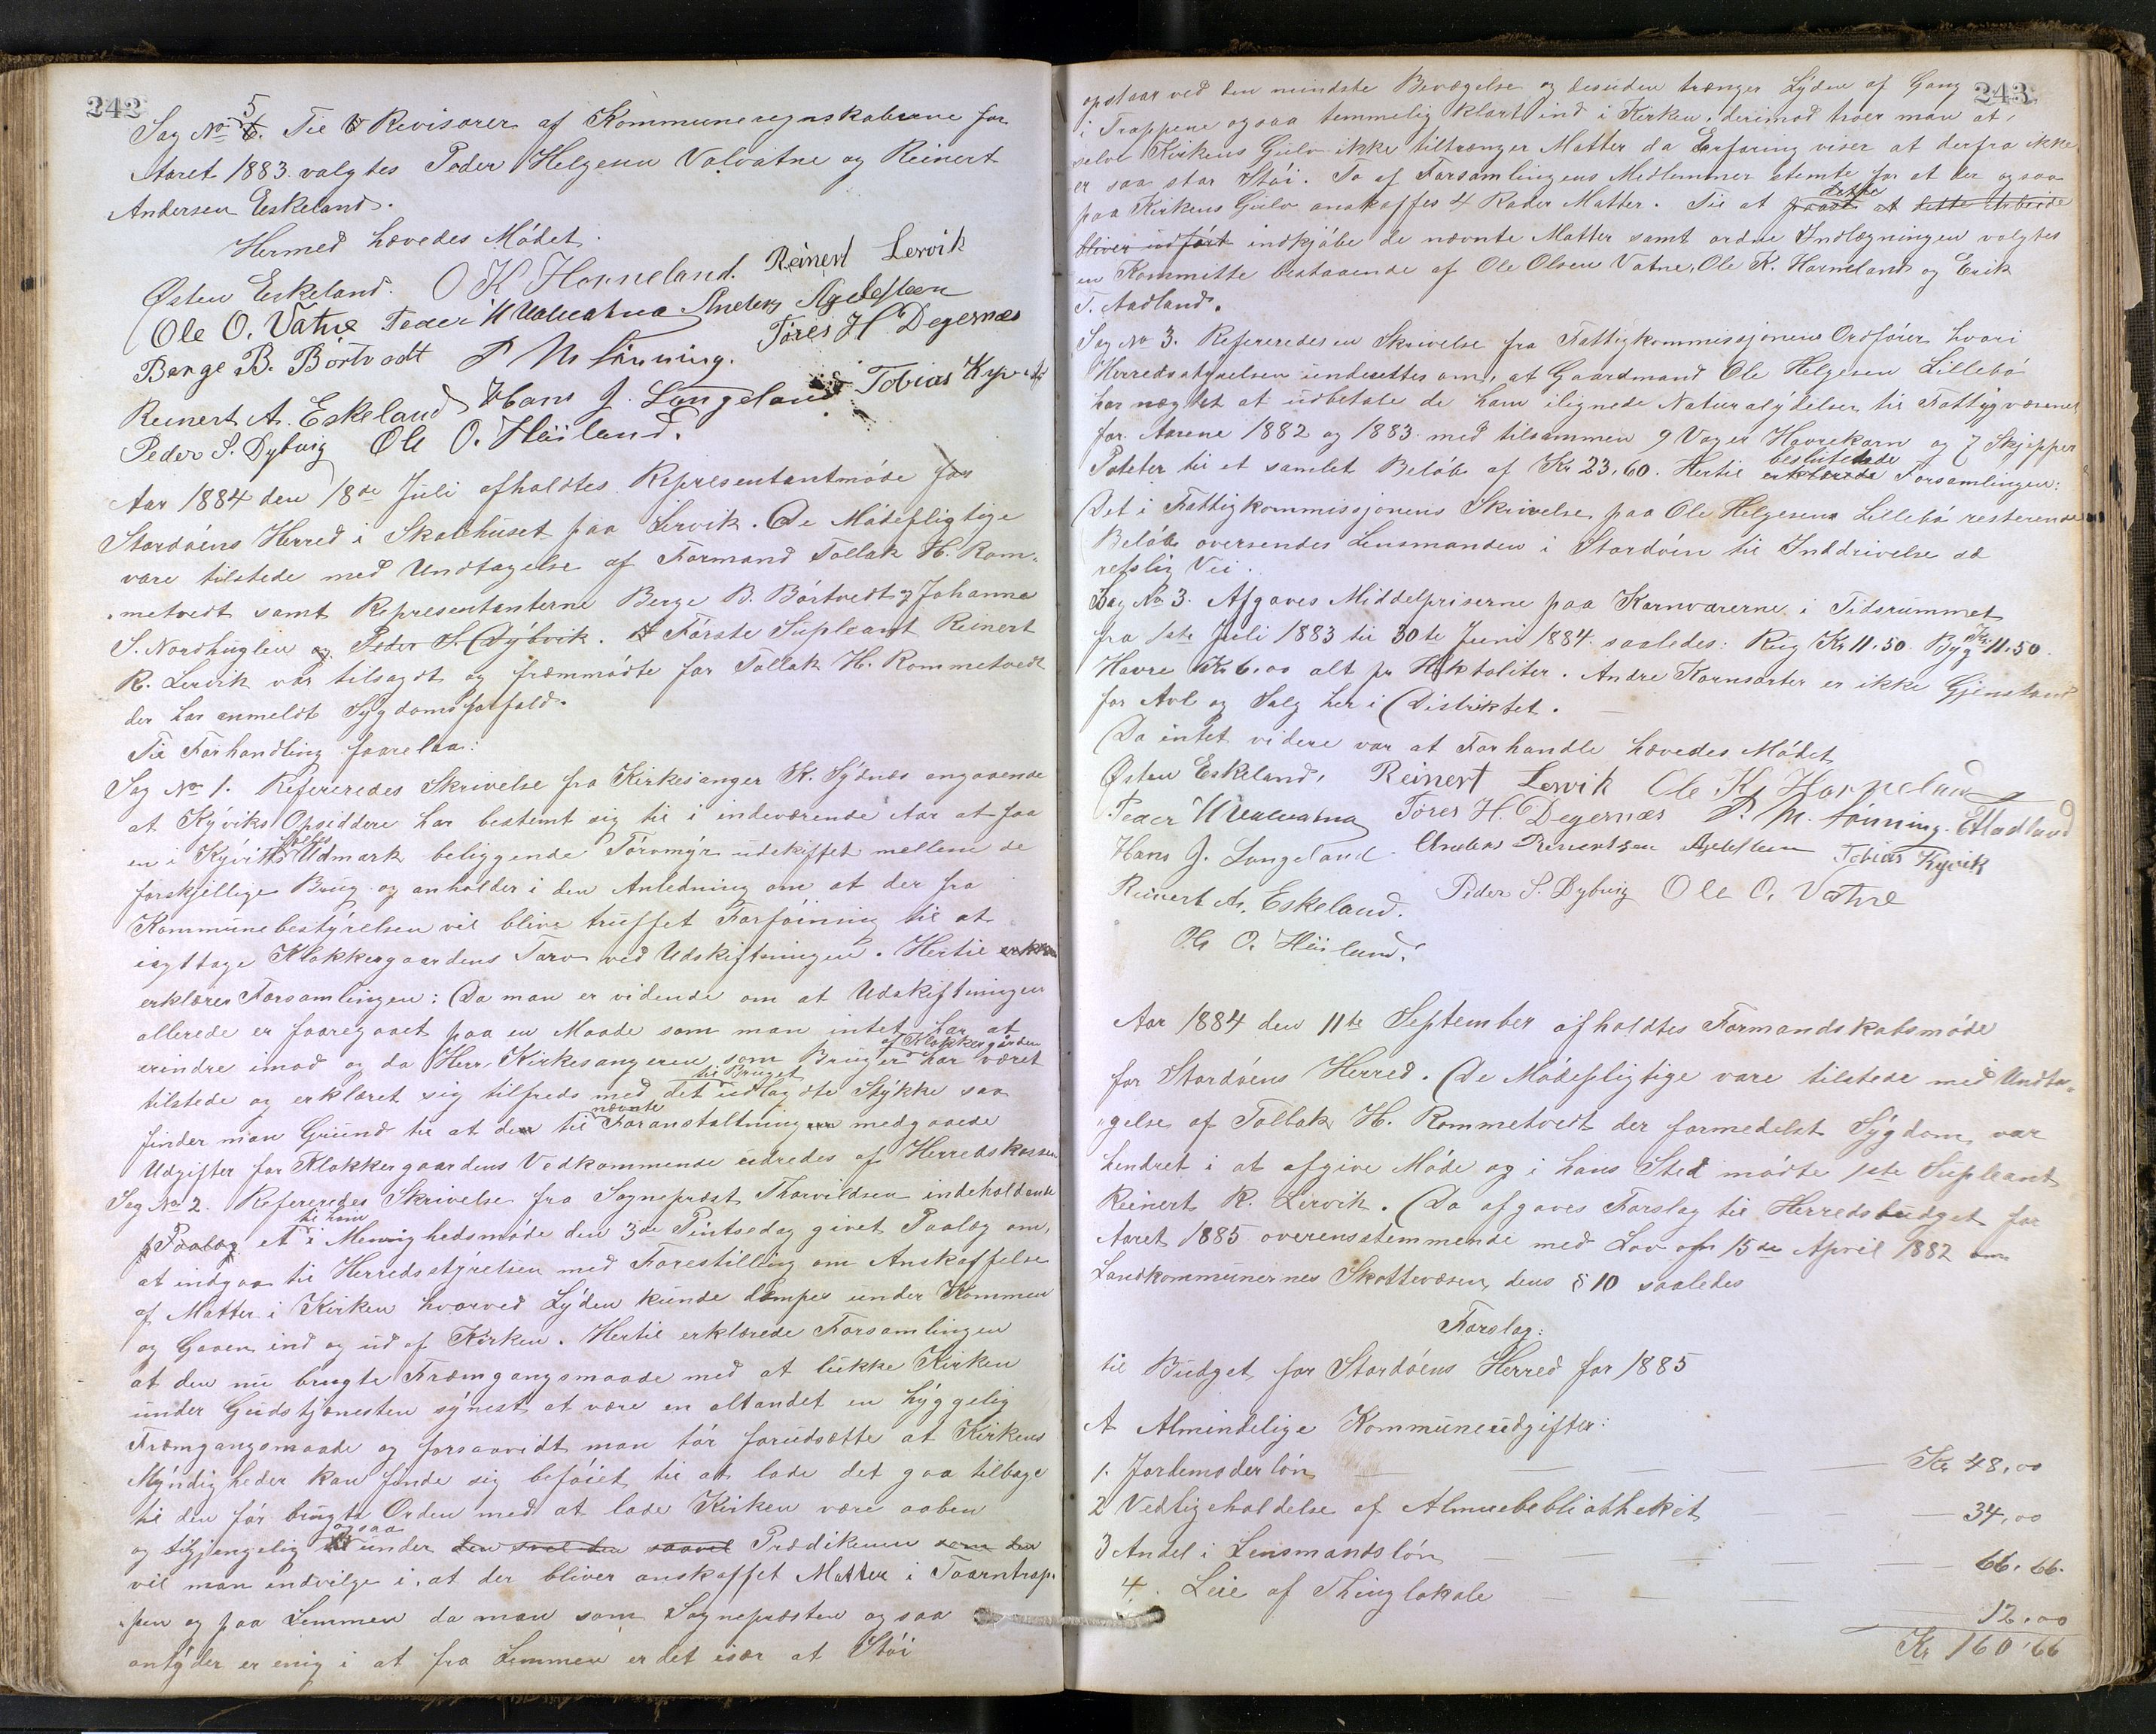 242
Sag No 5. Til Revisorer af Kommuneregnskaberne for
Aaret 1883 valgtes Peder Helgesen Valvatne og Reinert
Andersen Eskeland.
Hermed hævedes Mødet.
Østen Eskeland. O K Horneland. Reinert Lervik
Ole O. Vatne Peder H Valvatna Anders Agdesteen
Berge B. Børtvedt P M Lønning. Tøres H. Degernæs
Reinert A. Eskeland Hans J. Langeland Tobias Kyvik
Peder S. Dybvig Ole O. Høiland.
Aar 1884 den 18de Juli afholdtes Representantmøde for
Stordøens Herred i Skolehuset paa Lervik. De Mødepligtige
vare tilstede med Undtagelse af Formand Tollak H. Rom-
metvedt samt Representanterne Berge B. Børtvedt og Johanne
S. Nordhuglen og Peder S. Dybvik. Første Supleant Reinert
R. Lervik var tilsagdt og fræmmødte for Tollak H. Rommetvedt
der har anmeldt Sygdomsforfald.
Til Forhandling forelaa:
Sag No 1. Refereredes Skrivelse fra Kirkesanger K. Sydnæs angaaende
at Kyviks Opsiddere har bestemt sig til i indeværende Aar at faa
en i Kyviks fælles Udmark beliggende Torvmyr udskiftet mellem de
forskjellige Brug og anholder i den Anledning om at der fra
Kommunebestyrelsen vil blive truffet Forføining til at
iagttage Klokkergaardens Tarv ved Udskiftningen. Hertil erkk
erklærer Forsamlingen: Da man er vidende om at Udskiftningen
allerede er foregaaet paa en Maade som man intet har at
erindre imod og da Herr Kirkesangeren som Bruger af Klokkergården har været
tilstede og erklæret sig tilfreds med det til Bruget udlagdte Stykke saa
finder man Grund til at den til nævnte Foranstaltning medgaaede
Udgifter for Klokkergaardens Vedkommende udredes af Herredskassen
Sag No 2. Refereredes Skrivelse fra Sogneprest Thorvildsen indeholdende
Paalæg et til ham i Menighedsmøde den 3de Pintsedag givet Paalæg om,
at indgaa til Herredsstyrelsen med Forestilling om Anskaffelse
af Matter i Kirken hvorved Lyden kunde dæmpes under Kommen
og Gaaen ind og ud af Kirken. Hertil erklærede Forsamlingen
at den nu brugte Fræmgangsmaade med at lukke Kirken
under Gudstjenesten synest at være en altandet en hyggelig
Fræmgangsmaade og forsaavidt man tør forudsætte at Kirkens
Myndigheder kan finde sig beføiet til at lade det gaa tilbage
til den før brugte Orden med at lade Kirken være aaben
og tilgjengelig ogsaa under den saavel Prædikenen som den
vil man indvilge i, at der bliver anskaffet Matter i Taarntrap-
pen og paa Lemmen da man som Sognepræsten og saa
antyder er enig i at fra Lemmen er det især at Støi
243
opstaar ved den mindste Bevægelse og desuden trænger Lyden af Gang
i Trappene ogsaa temmelig klart ind i Kirken, derimod troer man at,
selve Kirkens Gulv ikke tiltrænger Matter da Erfaring viser at derfra ikke
er saa stor Støi. To af Forsamlingens Medlemmer stemte for at der ogsaa
paa Kirkens Gulv anskaffes 4 Rader Matter. Til at paase at dette Arbeide
bliver udført indkjøbe de nævnte Matter samt ordne Indlægningen valgtes
en Kommitte bestaaende af Ole Olsen Vatne, Ole K. Horneland og Erik
T. Aadland.
Sag No 3. Refereredes en Skrivelse fra Fattigkommissjonens Ordfører hvori
Herredsstyrelsen underettes om, at Gaardmand Ole Helgesen Lillebø
har nægtet at udbetale de ham ilignede Naturalydelser til Fattigvæsenet
for Aarene 1882 og 1883 med tilsammen 9 Voger Havrekorn og 7 Skjepper
Poteter til et samlet Beløb af Kr 23,60. Hertil erklærede besluttede Forsamlingen:
Det i Fattigkommissjonens Skrivelse paa Ole Helgesens Lillebø resterende
Beløb oversendes Lensmanden i Stordøen til Inddrivelse ad
retslig Vei.
Sag No 3. Afgaves Middelpriserne paa Kornvarerne i Tidsrummet
fra 1ste Juli 1883 til 30te Juni 1884 saaledes: Rug Kr 11.50. Byg Kr. 11.50.
Havre Kr 6,00 alt pr Hektoliter. Andre Kornsorter er ikke Gjenstand
for Avl og Salg her i Distriktet.
Da intet videre var at Forhandle hævedes Mødet
Østen Eskeland, Reinert Lervik Ole K Horneland
Peder H Valvatna Tøres H. Degernæs P. M. Lønning. E Aadland
Hans J. Langeland Anders Reinertsen Agdesteen Tobias Kyvik
Reinert A. Eskeland. Peder S. Dybvig Ole O. Vatne
Ole O. Høiland.
Aar 1884 den 11te September afholdtes Formandskabsmøde
for Stordøens Herred. De Mødepligtige vare tilstede med Undta-
gelse af Tollak H. Rommetvedt der formedelst Sygdom var
hindret i at afgive Møde og i hans Sted mødte 1ste Supleant
Reinert R. Lervik. Da afgaves Forslag til Herredsbudget for
Aaret 1885 overensstemmende med Lov af 15de April 1882 om
Landkommunernes Skattevæsen, dens § 10 saaledes
Forslag:
til Budget for Stordøens Herred for 1885
A Almindelige Kommuneudgifter:
1. Jordemoderløn Kr 48,00
2 Vedligeholdelse af Almuebibliotheket 34,00
3 Andel i Lensmandsløn 66,66.
4. Leie af Thinglokale 12,00
Kr 160,66